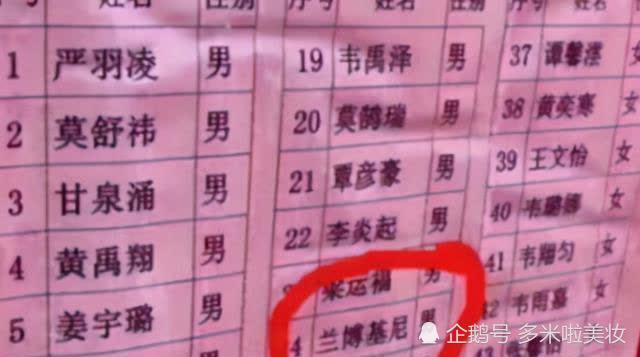 序号 姓名 性别
1 严羽凌 男 19 韦禹泽 男 37 谭馨滢 女
2 莫舒祎 男 20 莫鹄瑞 男 38 黄奕寒 女
3 甘泉涌 男 21 覃彦豪 男 39 王文怡 女
4 黄禹翔 男 22 李炎起 男 40 韦璐娜 女
5 姜宇璐 男 运福 男 41 韦翔匀 女
4 兰博基尼 男 42 韦雨嘉 女
43
企鹅号 多米啦美妆